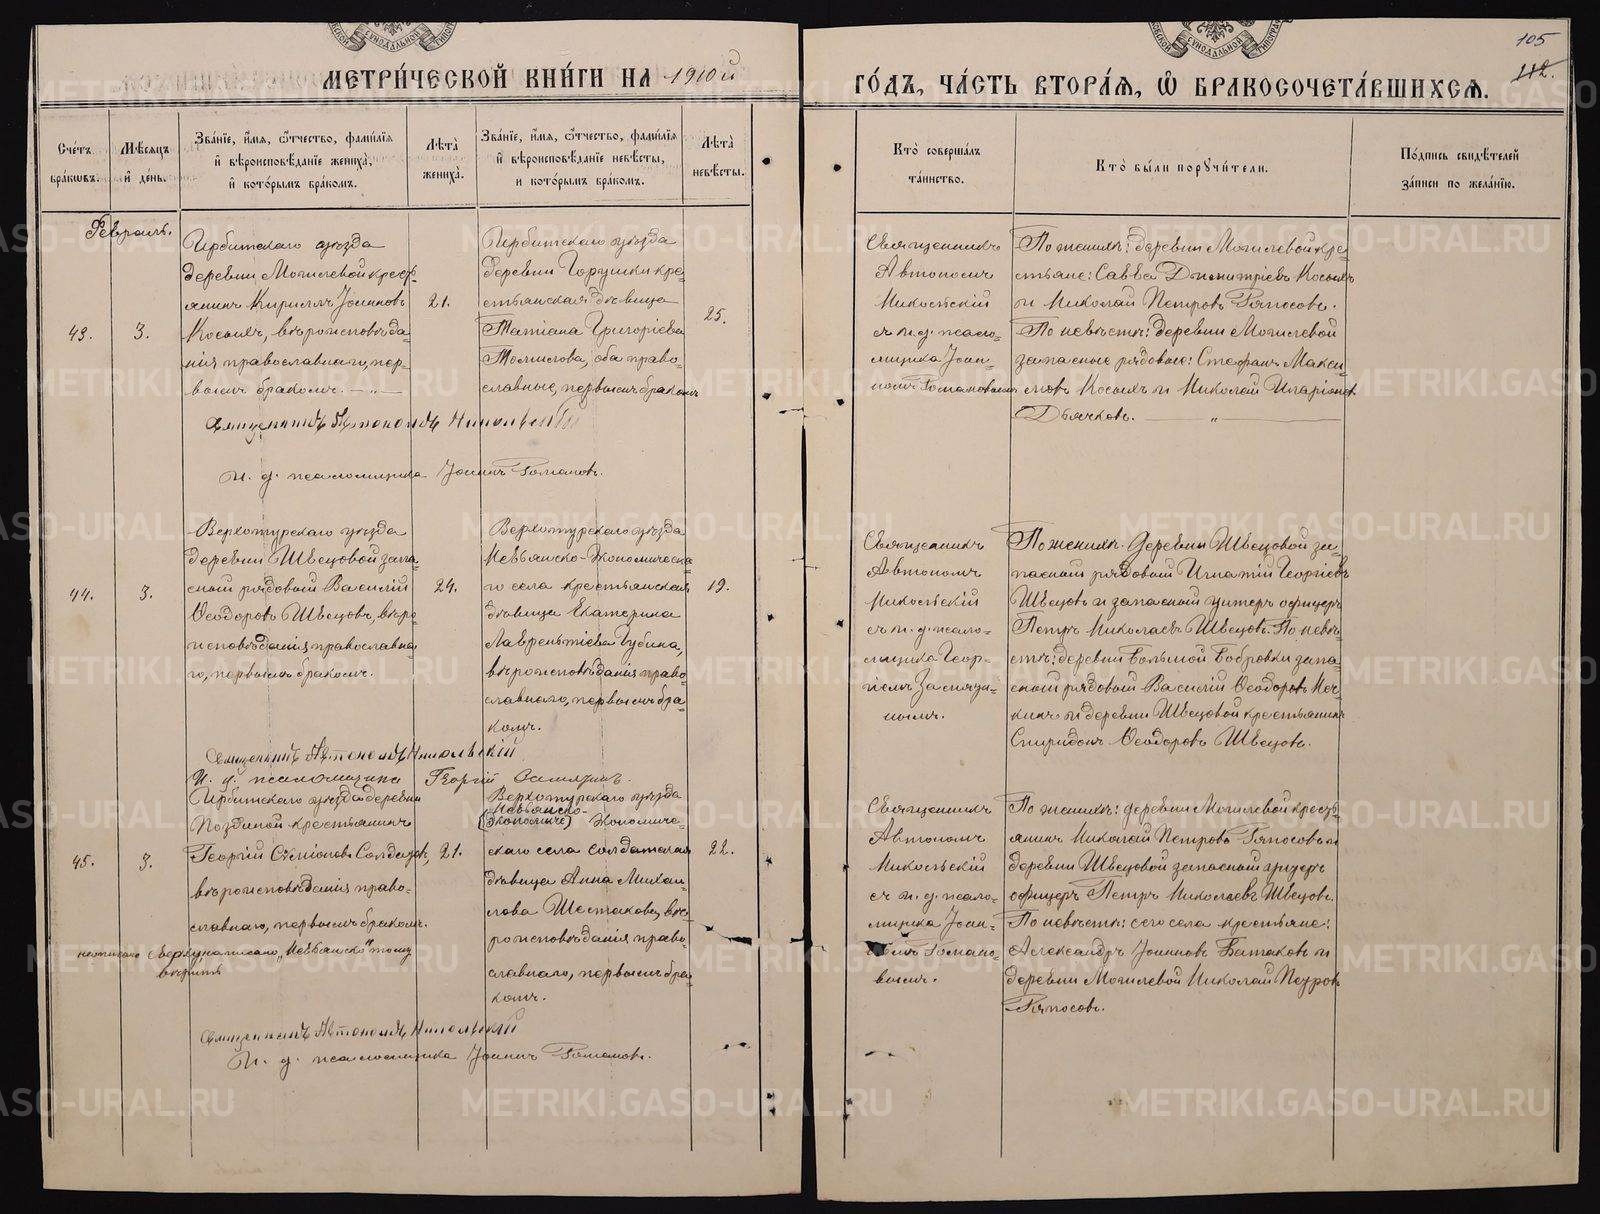 МЕТРИ́ЧЕСКОЙ КНИ́ГИ НА 1910й
ГО́ДЪ, ЧА́СТЬ ВТОРА́Я, Ѽ БРАКОСОЧЕТА́ВШИХСЯ.
105
112.
Сче́тъ бра́ковъ.
Мѣ́сяцъ и҆ де́нь.
Зва́нїе, и҆́мя, ѻ҆́тчество, фами́лїя и҆ вѣроисповѣ́данїе жениха̀, и҆ кото́рымъ бра́комъ.
Лѣ́та жениха̀.
Зва́нїе, и҆́мя, ѻ҆́тчество, фами́лїя и҆ вѣроисповѣ́данїе невѣ́сты, и кото́рымъ бра́комъ.
Лѣ́та невѣ́сты.
Кто̀ соверша́лъ та́инство.
Кто̀ бы́ли порꙋчи́тели.
По́дпись свидѣ́телей за́писи по жела́нїю.
Февраль.
43.
3.
Ирбитскаго уѣзда
деревни Могилевой кресть
янинъ Кириллъ Іоанновъ
Косыхъ, вѣроисповѣда
нія православнаго, пер-
вымъ бракомъ.
21.
Ирбитскаго уѣзда
деревни Горушки кре
стьянская дѣвица
Татіана Григоріева
Томилова, оба право
славные, первымъ бракомъ
25.
Священникъ
Автономъ
Никольскій
съ и. д. псало-
мщика Іоан-
номъ Романовымъ
По женихѣ: деревни Могилевой кре-
стьяне: Савва Димитріевъ Косыхъ
и Николай Петровъ Ряпосовъ.
По невѣстѣ: деревни Могилевой
запасные рядовые: Стефанъ Макси-
мовъ Косыхъ и Николай Иларіоновъ
Дьячковъ.
Священникъ Автономъ Никольскій
И. д. псаломщика Іоаннъ Романовъ.
44.
3.
Верхотурскаго уѣзда
деревни Швецовой запа
сный рядовой Василій
Ѳеодоровъ Швецовъ, вѣро
исповѣданія православна
го, первымъ бракомъ.
24.
Верхотурскаго уѣзда
Невьянско-Экономическа
го села крестьянская
дѣвица Екатерина
Лаврентіева Губина,
вѣроисповѣданія право
славнаго, первымъ бра
комъ.
19.
Священникъ
Автономъ
Никольскій
съ и. д. псало-
мщика Геор-
гіемъ
По женихѣ: деревни Швецовой за-
пасный рядовой Игнатій Георгіевъ
Швецовъ и запасный унтеръ офицеръ
Петръ Николаевъ Швецовъ. По невѣ-
стѣ: деревни Большой Бобровки запа-
сный рядовой Василій Ѳеодоровъ
и деревни Швецовой крестьянинъ
Спиридонъ Ѳеодоровъ Швецовъ.
Священникъ Автономъ Никольскій
И. д. псаломщика Георгій
45.
3.
Ирбитскаго уѣзда деревни
Поздиной крестьянинъ
Георгій Симіоновъ Солдатовъ,
вѣроисповѣданія право-
славнаго, первымъ бракомъ.
21.
Верхотурскаго уѣзда
Невьянско-
(Экономиче) Экономиче-
скаго села солдатская
дѣвица Анна Михаи-
лова Шестакова, вѣ-
роисповѣданія право-
славнаго, первымъ бра
комъ.
22.
Священникъ
Автономъ
Никольскій
съ и. д. псало-
мщика Іоан-
номъ Романо-
вымъ.
По женихѣ: деревни Могилевой кресть
янинъ Николай Петровъ Ряпосовъ и
деревни Швецовой запасный унтеръ
офицеръ Петръ Николаевъ Швецовъ.
По невѣстѣ: сего села крестьяне:
Александръ Іоанновъ Батаковъ и
деревни Могилевой Николай Петровъ
Ряпосовъ.
сверху написано „Невьянско" тому
вѣрить
Священникъ Автономъ Никольскій
И. д. псаломщика Іоаннъ Романовъ.
METRIKI.GASO-URAL.RU